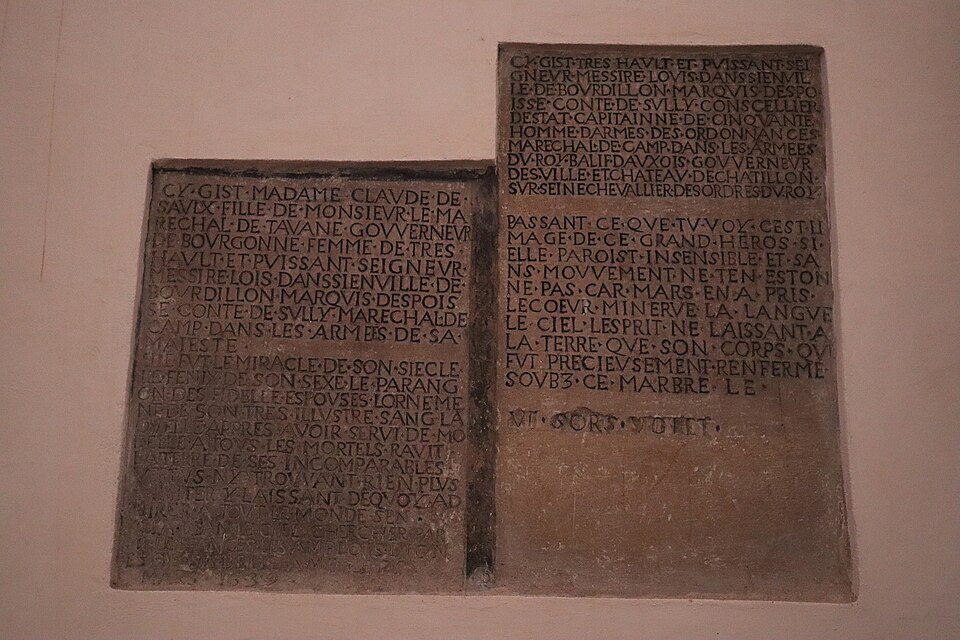 CY·GIST·MADAME·CLAVDE·DE·
SAVLX·FILLE·DE·MONSIEVR·LE·MA
RECHAL·DE·TAVANE·GOVVERNEVR
DE·BOVRGONNE·FEMME·DE·TRES·
HAVLT·ET·PVISSANT·SEIGNEVR·
MESSIRE·LOIS·DANSSIENVILLE·DE·
BOVRDILLON·MARQVIS·DESPOIS
SE·CONTE·DE·SVLLY·MARECHAL·DE
CAMP·DANS·LES·ARMEES·DE·SA·
MAIESTE
ELLE·FVT·LE·MIRACLE·DE·SON·SIECLE
LE·FENIX·DE·SON·SEXE·LE·PARANG
ON·DES·FIDELLE·ESPOVSES·LORNEME
NT·DE·SON·TRES·ILLVSTRE·SANG·LA
QVELLE·APRES·AVOIR·SERVI·DE·MO
DELLE·A·TOVS·LES·MORTELS·RAVIT
DE·SES·INCOMPARABLES
VERTVS·NY·TROVVANT·RIEN·PLVS
Y·LAISSANT·DEQVOY·AD
MIRER·A·TOVT·LE·MONDE·SEN
LE·CIEL·CHERCHER
1639
CY·GIST·TRES·HAVLT·ET·PVISSANT·SEI
GNEVR·MESSIRE·LOVIS·DANSSIENVIL
LE·DE·BOVRDILLON·MARQVIS·DESPO
ISSE·CONTE·DE·SVLLY·CONSCELLIER
DESTAT·CAPITAINNE·DE·CINQVANTE
HOMME·DARMES·DES·ORDONNANCES
MARECHAL·DE·CAMP·DANS·LES·ARMEES
DV·ROY·BALIF·DAVXOIS·GOVVERNEVR
DES·VILLE·ET·CHATEAV·DE·CHATILLON
SVR·SEINE·CHEVALLIER·DES·ORDRES·DV·ROY
PASSANT·CE·QVE·TV·VOY·CEST·LI
MAGE·DE·CE·GRAND·HEROS·SI·
ELLE·PAROIST·INSENSIBLE·ET·SA
NS·MOVVEMENT·NE·TEN·ESTON
NE·PAS·CAR·MARS·EN·A·PRIS·
LE·COEVR·MINERVE·LA·LANGVE
LE·CIEL·LESPRIT·NE·LAISSANT·A
LA·TERRE·QVE·SON·CORPS·QVI
FVT·PRECIEVSEMENT·RENFERME
SOVBZ·CE·MARBRE·LE·
VT·SORS·VOLET·